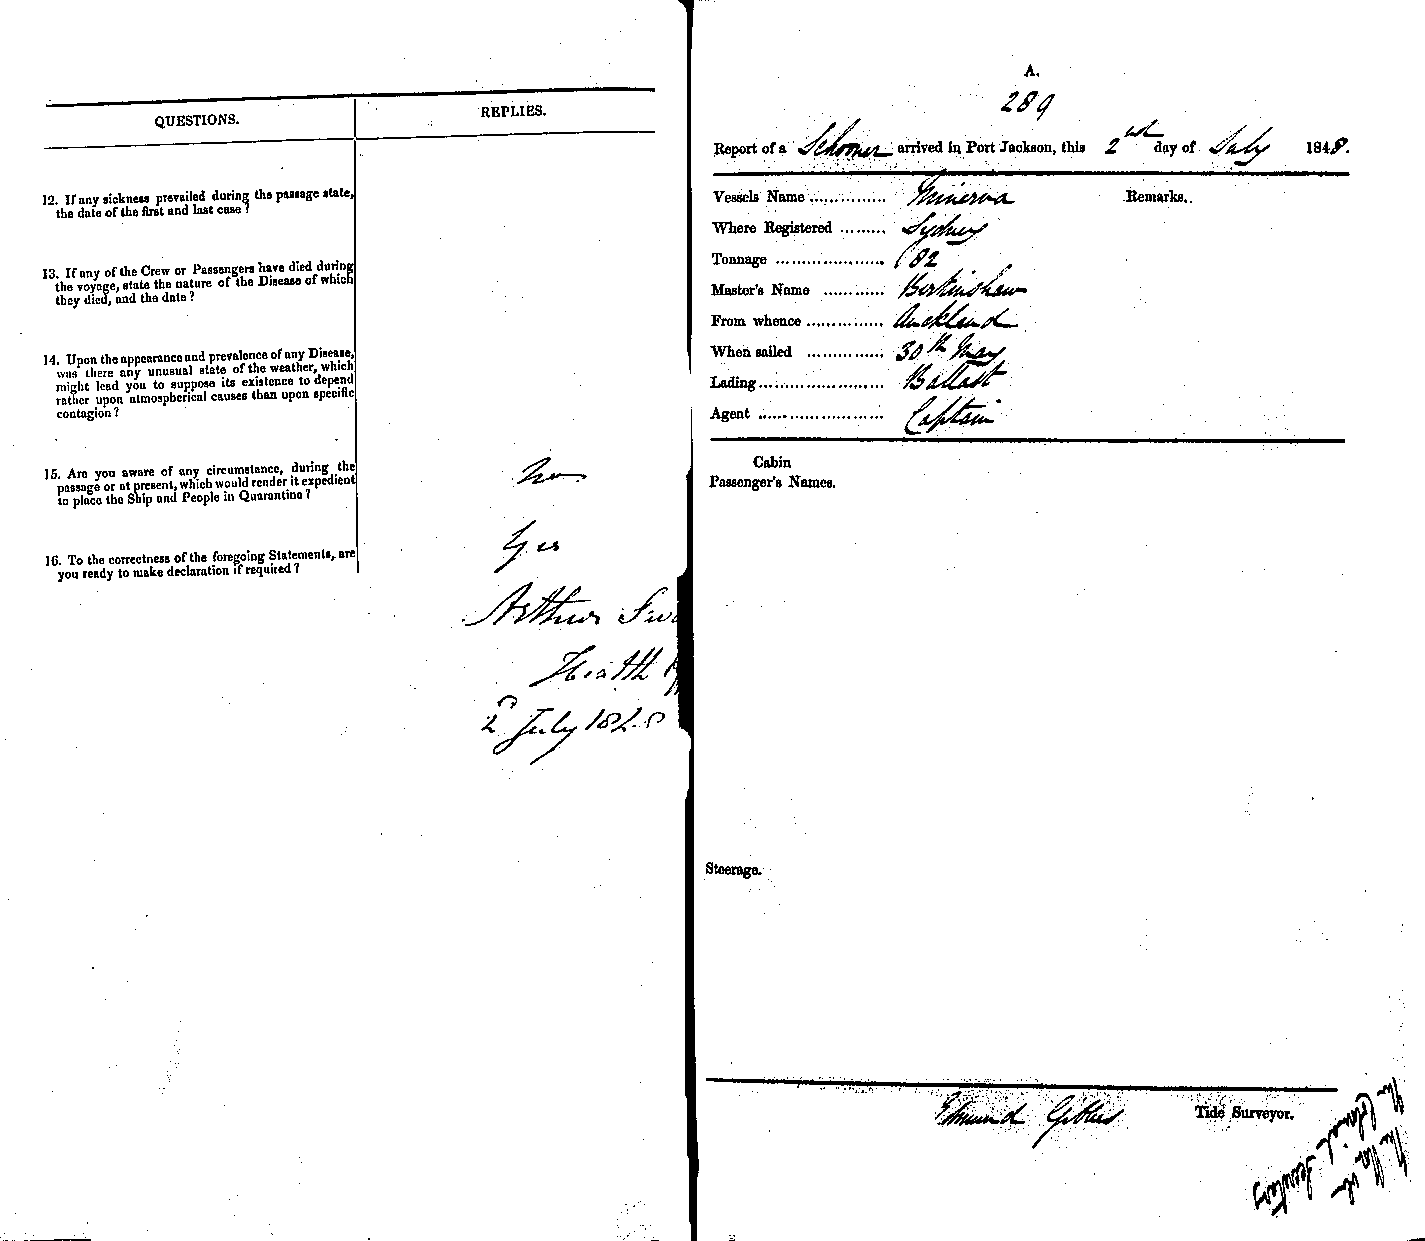 QUESTIONS.
REPLIES.
12. If any sickness prevailed during the passage state,
the date of the first and last case ?
13. If any of the Crew or Passengers have died during
the voyage, state the nature of the Disease of which
they died, and the date ?
14. Upon the appearance and prevalence of any Disease,
was there any unusual state of the weather, which
might lead you to suppose its existence to depend
rather upon atmospherical causes than upon specific
contagion ?
15. Are you aware of any circumstance, during the
passage or at present, which would render it expedient
to place the Ship and People in Quarantine ?
No
16. To the correctness of the foregoing Statements, are
you ready to make declaration if required ?
Yes
Arthur
Health
2d July 1848
A.
289
Report of a Schooner arrived in Port Jackson, this 2nd day of July 1848.
Vessels Name ............... Minerva
Remarks.
Where Registered ......... Sydney
Tonnage ..................... 82
Master's Name ............ Birkinshaw
From whence ............... Auckland
When sailed ............... 30th May
Lading........................ Ballast
Agent ........................ Captain
Cabin
Passenger's Names.
Steerage.
Edmund Gibbes Tide Surveyor.
The Colonial Secretary